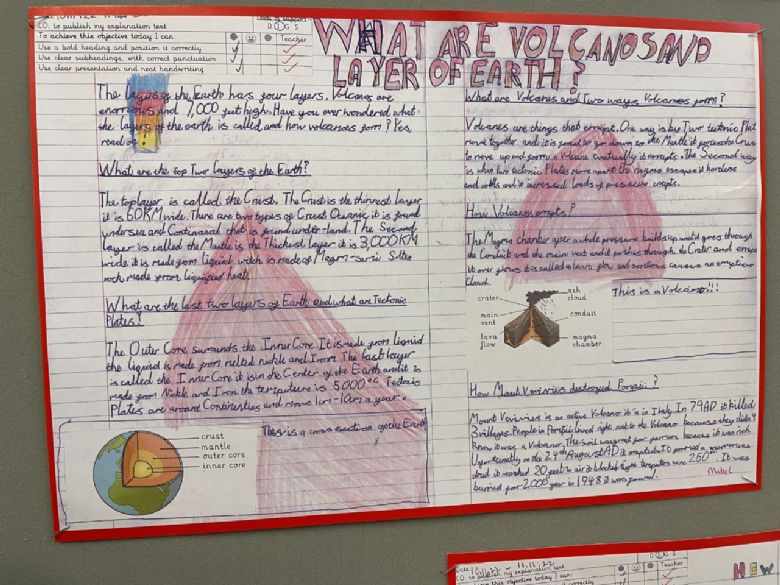 LO: to publish my explanation text
To achieve this objective today I can:
Teacher
Use a bold heading and position it correctly
Use clear subheadings, with correct punctuation
Use clear presentation and neat handwriting
WHAT ARE VOLCANOS AND
LAYER OF EARTH?
The layers of the Earth has four layers. Volcanos are
enormous and 7,000 feet high. Have you ever wondered what
the layers of the earth is called and how volcanoes form? Yes,
read on.
What are the top Two layers of the Earth?
The top layer is called the Crust. The Crust is the thinnest layer
it is 60KM wide. There are two types of Crust Oceanic it is found
undersea and Continanal that is found under-land. The Second
layer is called the Mantle is the Thickest layer it is 3,000KM
wide it is made from liquid witch is made of
rock made from liquified heat.
What are the last two layers of Earth and what are Tectonic
Plates?
The Outer Core surrounds the Inner Core. It is made from liquid
the liquid is made from melted nickle and Iron. The last layer
is called the Inner Core it is in the Center of the Earth and it is
made from Nickle and Iron the temputure is 5,000°C.
Plates are around Continenties and move 1cm-10cm a year.
crust
mantle
outer core
inner core
This is a cross section of the Earth
What are Volcanos and Two ways Volcanos form?
Volcanos are things that errupt. One way is by Two tectonic Plat
move together and it is forced to go down to the Mantle it forces the Crus
to move up and form a Volcano eventually it errupts. The Second way
is when two tectonic Plates move apart the magma escapes it hardens
and cools and is increased loads of pressure errupts.
How Volcano errupts?
The Magma chamber after a while pressure builds up and it goes through
the Conduit and the main vent and it pushes through the Crater and
it over flows it is called a lava flow and sometimes causes an eruption
Cloud.
This is a Volcano!!!
crater
ash cloud
main vent
conduit
lava flow
magma chamber
How Mount Vesivius destroyed ?
Mount Vesivius is an active Volcano it is in Italy. In 79AD it killed
3 villages. People in lived right next to the Volcano because they didn't
know it was a Volcano. The soil was great for farmers because it was rich.
on the 24th August AD it errupted. It formed a
cloud it reached 20 feet in air it blocked light were 250°. It was
burried for 2000 year in 1948 it was found.
LO: to publish my explanation text
this objective today I can:
Teacher
HOW